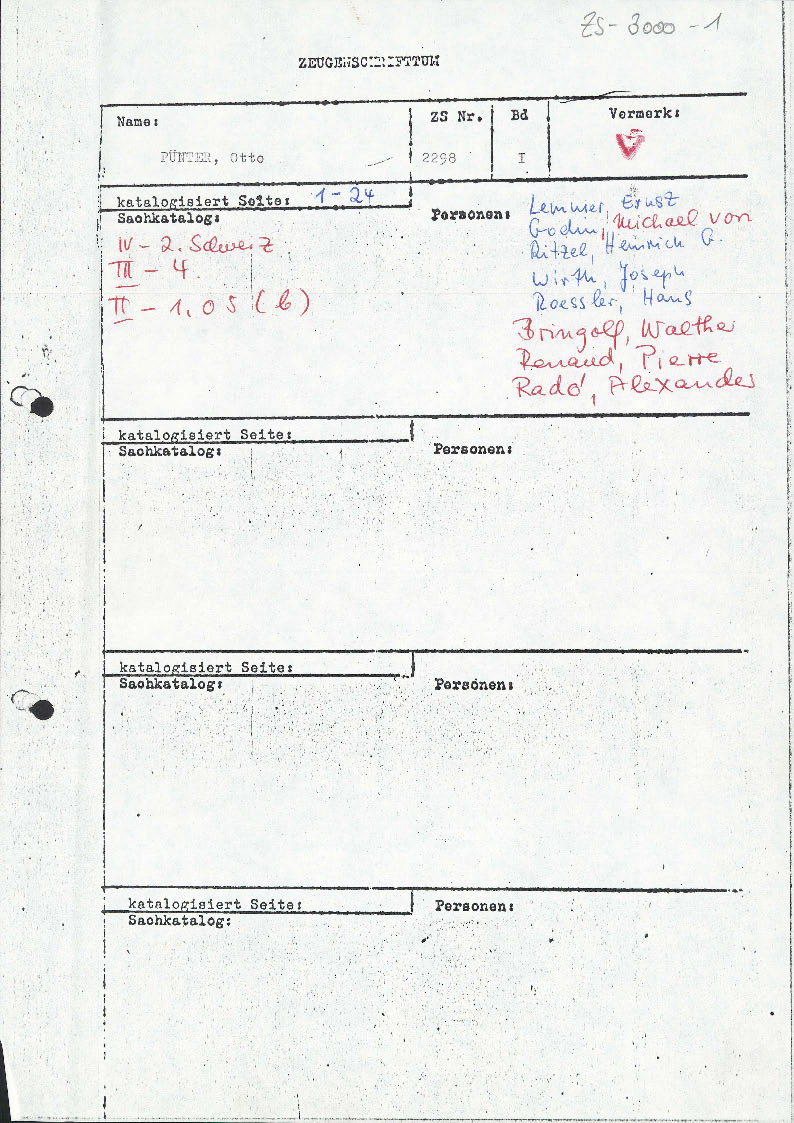 ZS-3000-1
ZEUGENSCHRIFTTUM
Name: ZS Nr. Bd Vermerk:
PÜNTER, Otto 2298 I V
katalogisiert Seite: 1-24
Sachkatalog:
IV - 2. Schweiz
III - 4.
II - 1.05 (b)
Personen: Lemmer, Ernst
Godin, Michael von
Ritzel, Heinrich G.
Wirth, Joseph
Roessler, Hans
Bringolf, Walther
Renaud, Pierre
Radó, Alexander
katalogisiert Seite:
Sachkatalog: Personen:
katalogisiert Seite:
Sachkatalog: Personen:
katalogisiert Seite: Personen:
Sachkatalog: